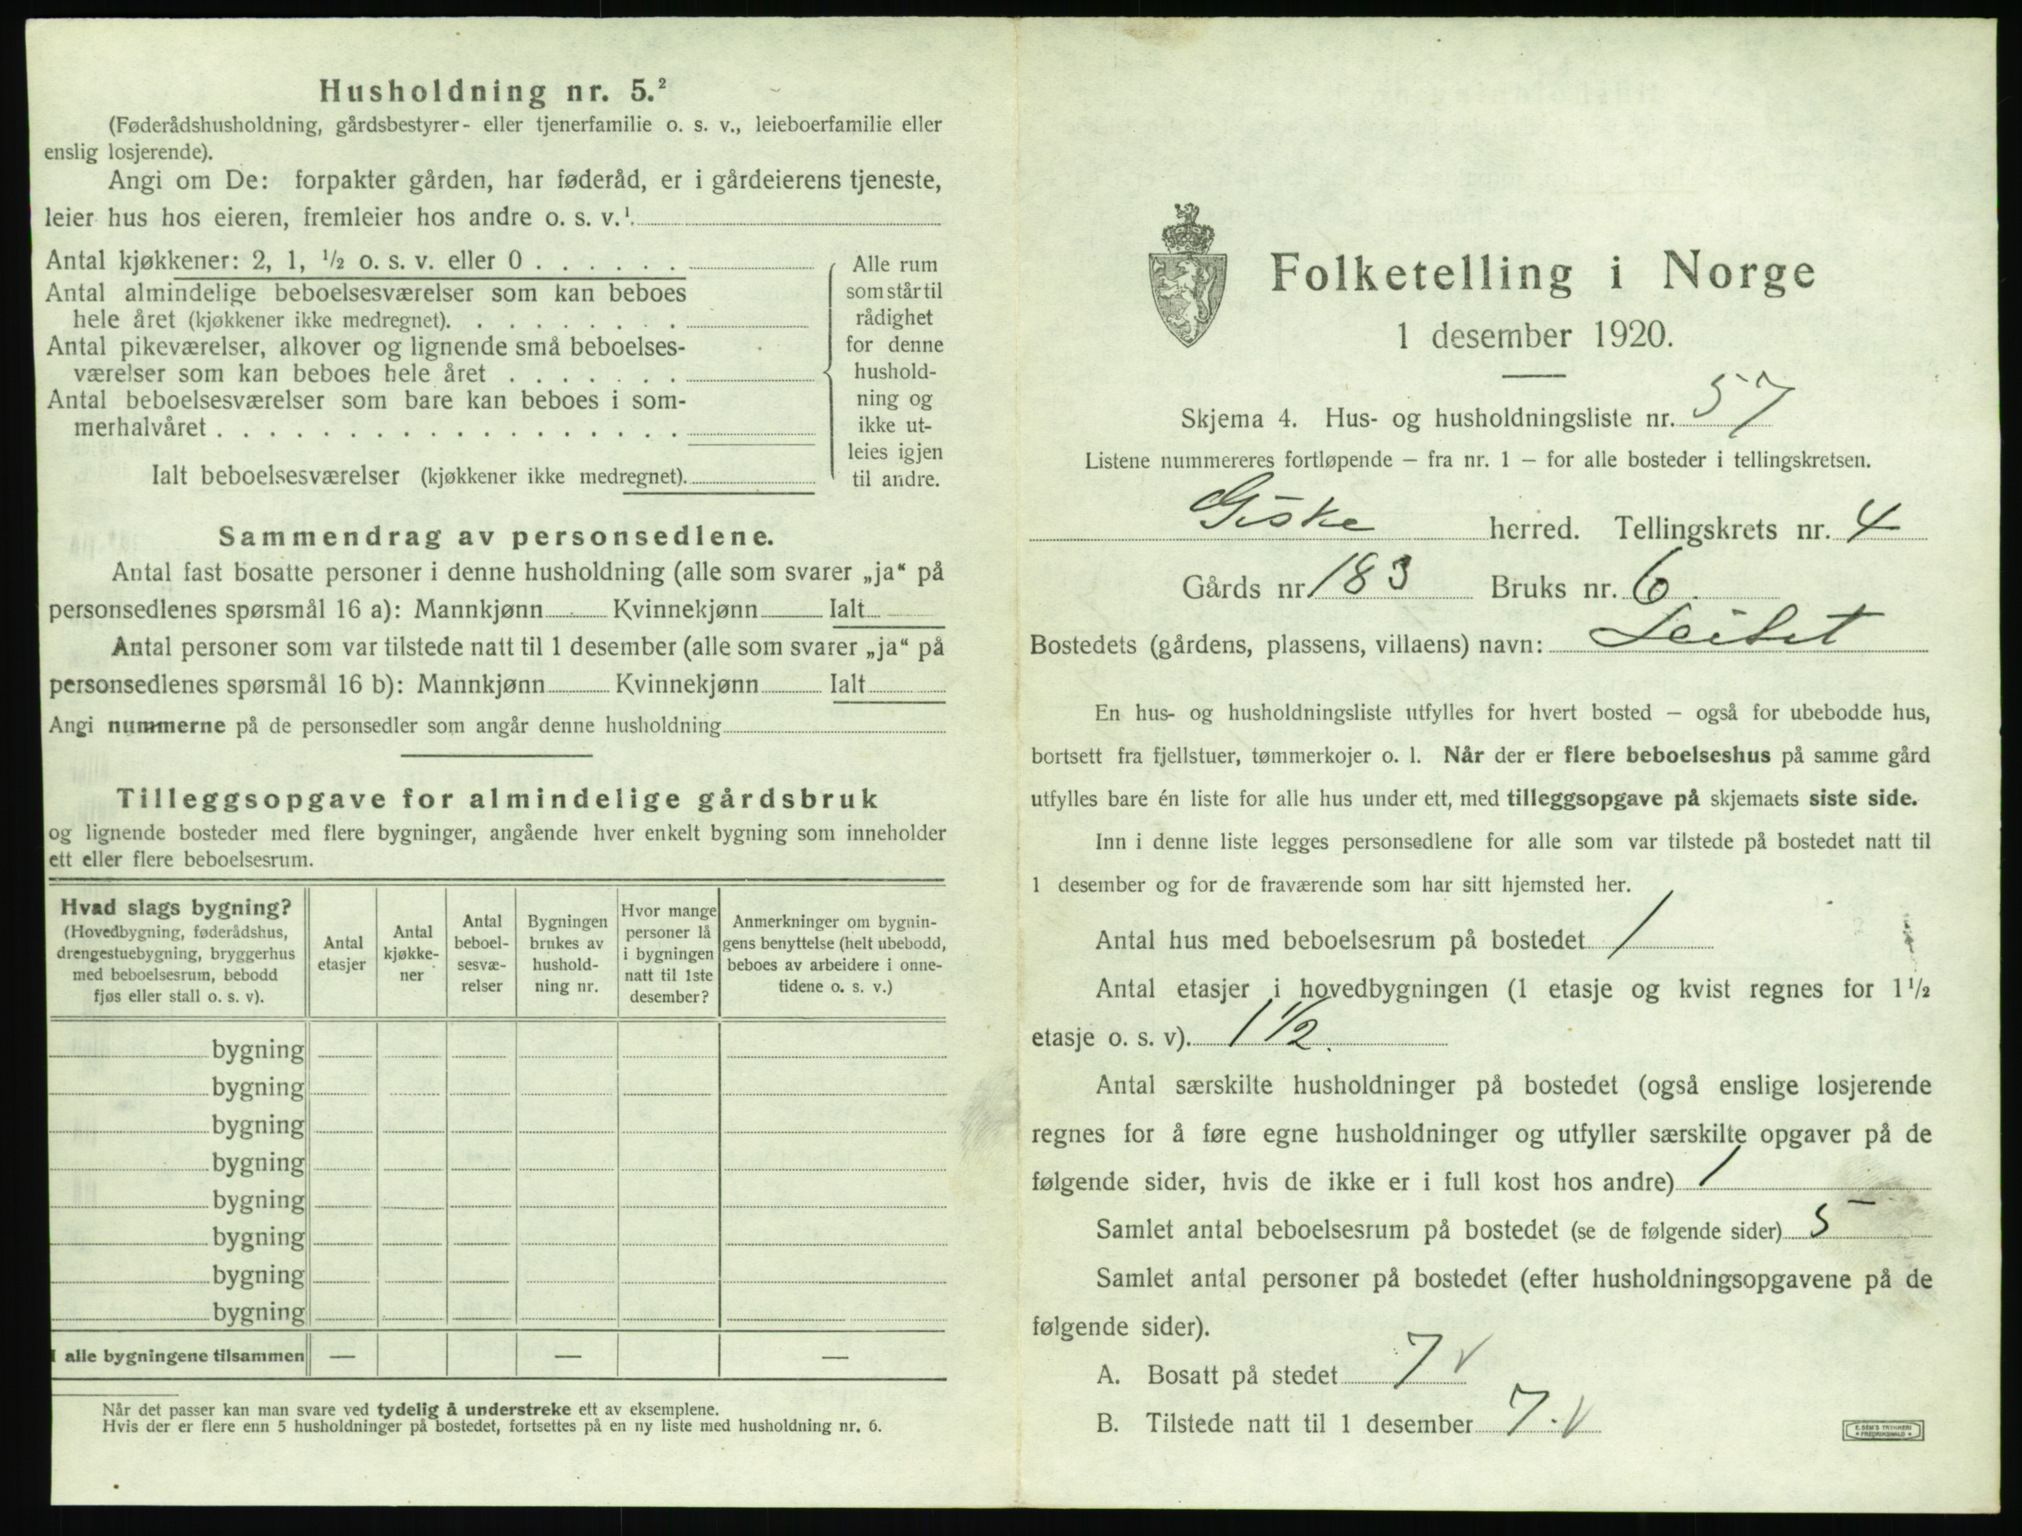 Husholdning nr. 5.²
(Føderådshusholdning, gårdsbestyrer- eller tjenerfamilie o. s. v., leieboerfamilie eller
enslig losjerende).
Angi om De: forpakter gården, har føderåd, er i gårdeierens tjeneste,
leier hus hos eieren, fremleier hos andre o. s. v.¹
Antal kjøkkener: 2, 1, ½ o. s. v. eller 0
Antal almindelige beboelsesværelser som kan beboes
hele året (kjøkkener ikke medregnet).
Antal pikeværelser, alkover og lignende små beboelses-
værelser som kan beboes hele året
Antal beboelsesværelser som bare kan beboes i som-
merhalvåret
Ialt beboelsesværelser (kjøkkener ikke medregnet).
Alle rum
som står til
rådighet
for denne
hushold-
ning og
ikke ut-
leies igjen
til andre.
Sammendrag av personsedlene.
Antal fast bosatte personer i denne husholdning (alle som svarer „ja“ på
personsedlenes spørsmål 16 a): Mannkjønn Kvinnekjønn Ialt
Antal personer som var tilstede natt til 1 desember (alle som svarer „ja“ på
personsedlenes spørsmål 16 b): Mannkjønn Kvinnekjønn Ialt
Angi nummerne på de personsedler som angår denne husholdning
Tilleggsopgave for almindelige gårdsbruk
og lignende bosteder med flere bygninger, angående hver enkelt bygning som inneholder
ett eller flere beboelsesrum.
Hvad slags bygning?
(Hovedbygning, føderådshus,
drengestuebygning, bryggerhus
med beboelsesrum, bebodd
fjøs eller stall o. s. v).
Antal
etasjer
Antal
kjøkke-
ner
Antal
beboel-
sesvæ-
relser
Bygningen
brukes av
hushold-
ning nr.
Hvor mange
personer lå
i bygningen
natt til 1ste
desember?
Anmerkninger om bygnin-
gens benyttelse (helt ubebodd,
beboes av arbeidere i onne-
tidene o. s. v.)
bygning
bygning
bygning
bygning
bygning
bygning
bygning
bygning
I alle bygningene tilsammen — — —
Når det passer kan man svare ved tydelig å understreke ett av eksemplene.
Hvis der er flere enn 5 husholdninger på bostedet, fortsettes på en ny liste med husholdning nr. 6.
Folketelling i Norge
1 desember 1920.
Skjema 4. Hus- og husholdningsliste nr. 57
Listene nummereres fortløpende – fra nr. 1 – for alle bosteder i tellingskretsen.
Giske herred. Tellingskrets nr. 4
Gårds nr. 183 Bruks nr. 6.
Bostedets (gårdens, plassens, villaens) navn:
En hus- og husholdningsliste utfylles for hvert bosted – også for ubebodde hus,
bortsett fra fjellstuer, tømmerkojer o. l. Når der er flere beboelseshus på samme gård
utfylles bare én liste for alle hus under ett, med tilleggsopgave på skjemaets siste side.
Inn i denne liste legges personsedlene for alle som var tilstede på bostedet natt til
1 desember og for de fraværende som har sitt hjemsted her.
Antal hus med beboelsesrum på bostedet 1
Antal etasjer i hovedbygningen (1 etasje og kvist regnes for 1½
etasje o. s. v). 1½.
Antal særskilte husholdninger på bostedet (også enslige losjerende
regnes for å føre egne husholdninger og utfyller særskilte opgaver på de
følgende sider, hvis de ikke er i full kost hos andre) 1
Samlet antal beboelsesrum på bostedet (se de følgende sider) 5
Samlet antal personer på bostedet (efter husholdningsopgavene på de
følgende sider).
A. Bosatt på stedet 7 v
B. Tilstede natt til 1 desember 7. v
E. SEM'S TRYKKERI
FREDRIKSHALD